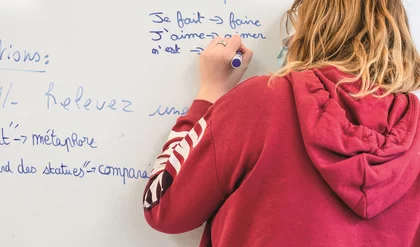 Je fait → faire
J'aime → aimer
m'est →
tions:
Relevez une
t" → métaphore
rd des statues" → compara